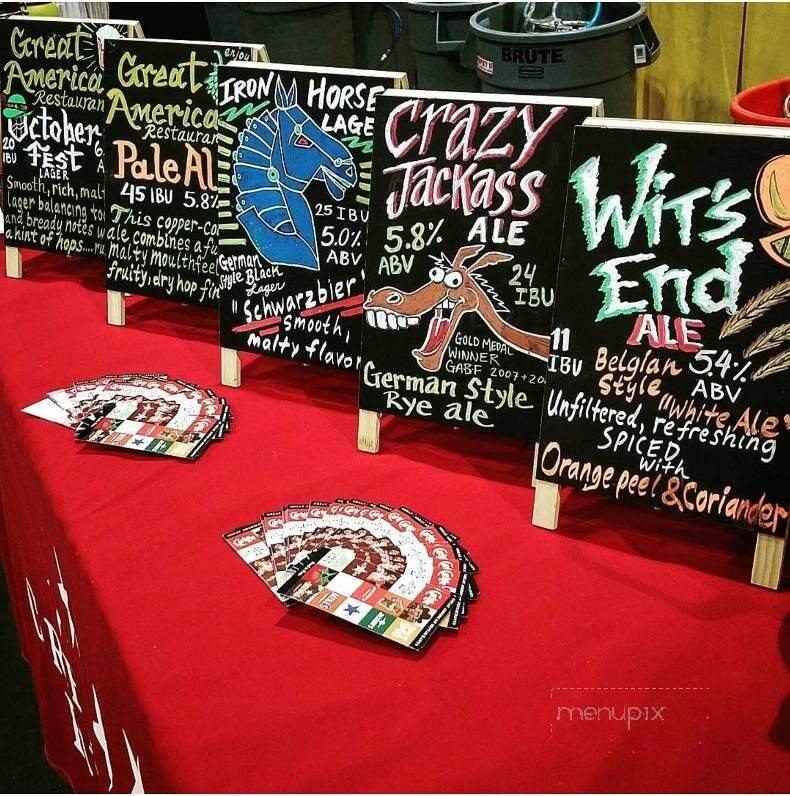 Great
America
Restauran
October
Fest
LAGER
20
IBU
Smooth, rich, malt
lager balancing
and bready notes
a hint of hops....
enjoy
Great
America
Restaurar
Pale Al
45 IBU 5.8%
This copper-co
ale combines a fu
malty mouthfeel
fruity, dry hop fin
IRON HORSE
LAGE
25 IBU
5.0%
ABV
German
Style Black
Lager
"Schwarzbier
smooth,
malty flavor
Crazy
Jackass
ALE
5.8%
ABV
24
IBU
GOLD MEDAL
WINNER
GABF 2007+20
German Style
Rye ale
Wit's
End
ALE
11
IBU
Belgian
Style "White Ale"
5.4%
ABV
Unfiltered, refreshing
SPICED
with
Orange peel & Coriander
BRUTE
menupix